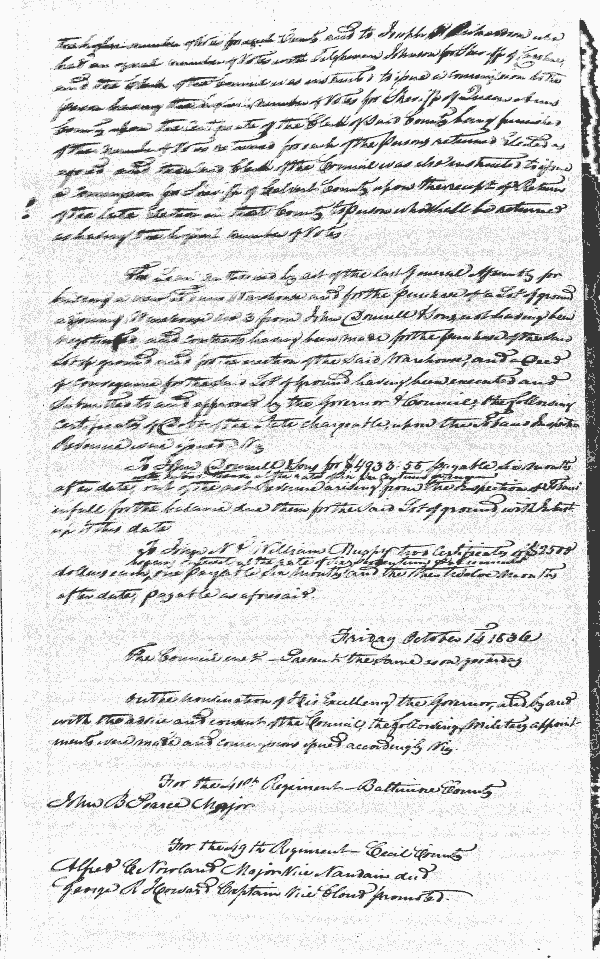 the highest number of Votes for such County and to Joseph Richardson who
had an equal number of Votes with Tilghman Johnson for Sheriff of Caroline,
and the Clerk of the Council was instructed to issue a Commission to the
person having the highest number of Votes for Sheriff of Queen Anns
County upon the Certificate of the Clerk of Said County being furnished
of the number of Votes returned for each of the Persons returned Elected as
and the Clerk of the Council was also instructed to issue
a Commission for Sheriff of Calvert County upon the receipt of Return
of the late Election in that County to person who shall be returned
as having the highest number of Votes

The Loan authorised by act of the last General Assembly for
building a new Warehouse and for the purchase of a Lot of ground
adjoining Warehouse No 3 from John Donnell & Sons, not having been
negotiated and Contracts having been made for the purchase of the said
Lot of ground and for the erection of the Said Warehouse, and a Deed
of Conveyance for the Said Lot of ground having been executed and
Submitted to and approved by the Governor & Council, the following
Certificates of Debt of the State chargeable upon the Tobacco Inspection
Revenue were issued Viz
To John Donnell & Sons for $4933.55, payable six months
after date, out of the nett Revenue arising from the Inspection of Tobacco
in full for the balance due them for the said Lot of ground, with Interest
up to this date
To John N & William Bussy two Certificates of $2500
bearing interest at the rate of six per centum per annum
dollars each, one payable Six months, and the other twelve months
after date, payable as aforesaid.

Friday October 14th 1836
The Council met – Present the same as on yesterday

On the nomination of His Excellency the Governor, and by and
with the advice and consent of the Council, the following Military appoint-
ments were made and commissions issued accordingly Viz.

For the 41st Regiment – Baltimore County
John B Pearce Major

For the 49th Regiment – Cecil County
Alfred C Nowland Major Vice Nandain decd
George R Howard Captain Vice Cloud promoted.